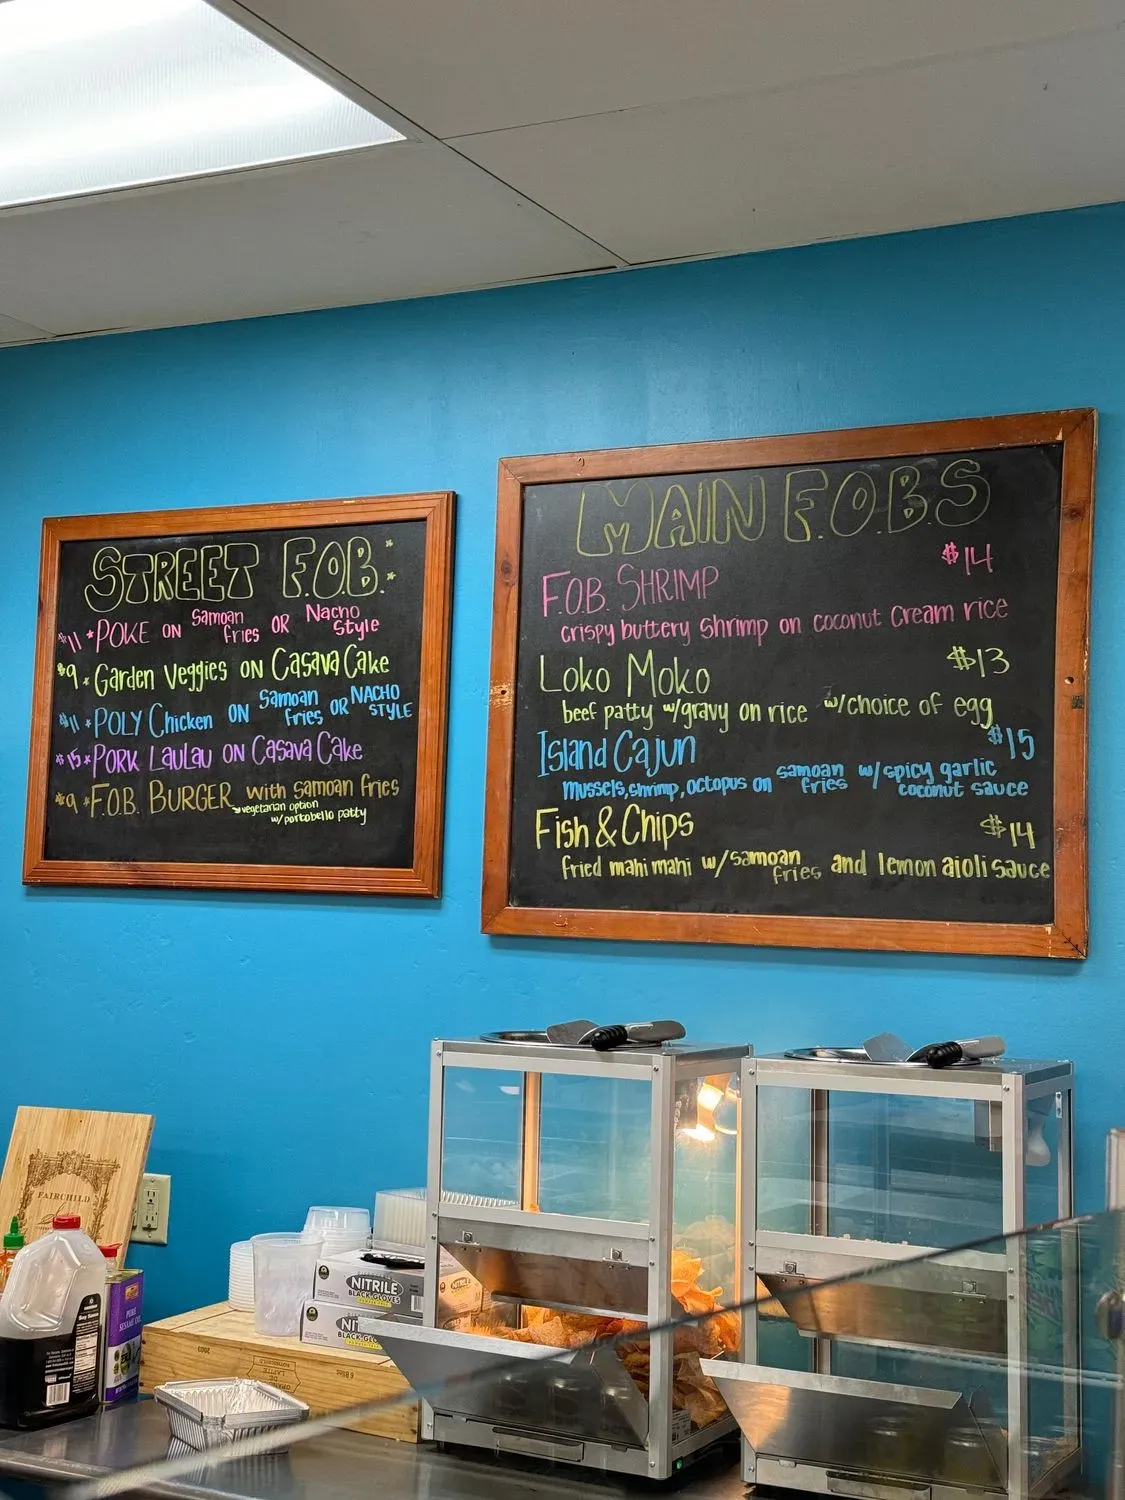 STREET F.O.B.
$11 * POKE ON Samoan fries OR Nacho Style
$9 * Garden Veggies ON Casava Cake
$11 * POLY Chicken ON Samoan fries OR NACHO STYLE
$15 * PORK LAULAU ON Casava Cake
$9 * F.O.B. BURGER with Samoan fries
vegetarian option
w/portobello patty
MAIN F.O.B.S
$14
F.O.B. SHRIMP
crispy buttery shrimp on coconut cream rice
Loko Moko $13
beef patty w/gravy on rice w/choice of egg
Island Cajun $15
mussels, shrimp, octopus on samoan fries w/spicy garlic coconut sauce
Fish & Chips $14
fried mahi mahi w/samoan fries and lemon aioli sauce
FAIRCHILD
NITRILE
BLACK GLOVES
NITRILE
NI
BLACK GLO
PURE
SESAME OIL
2003